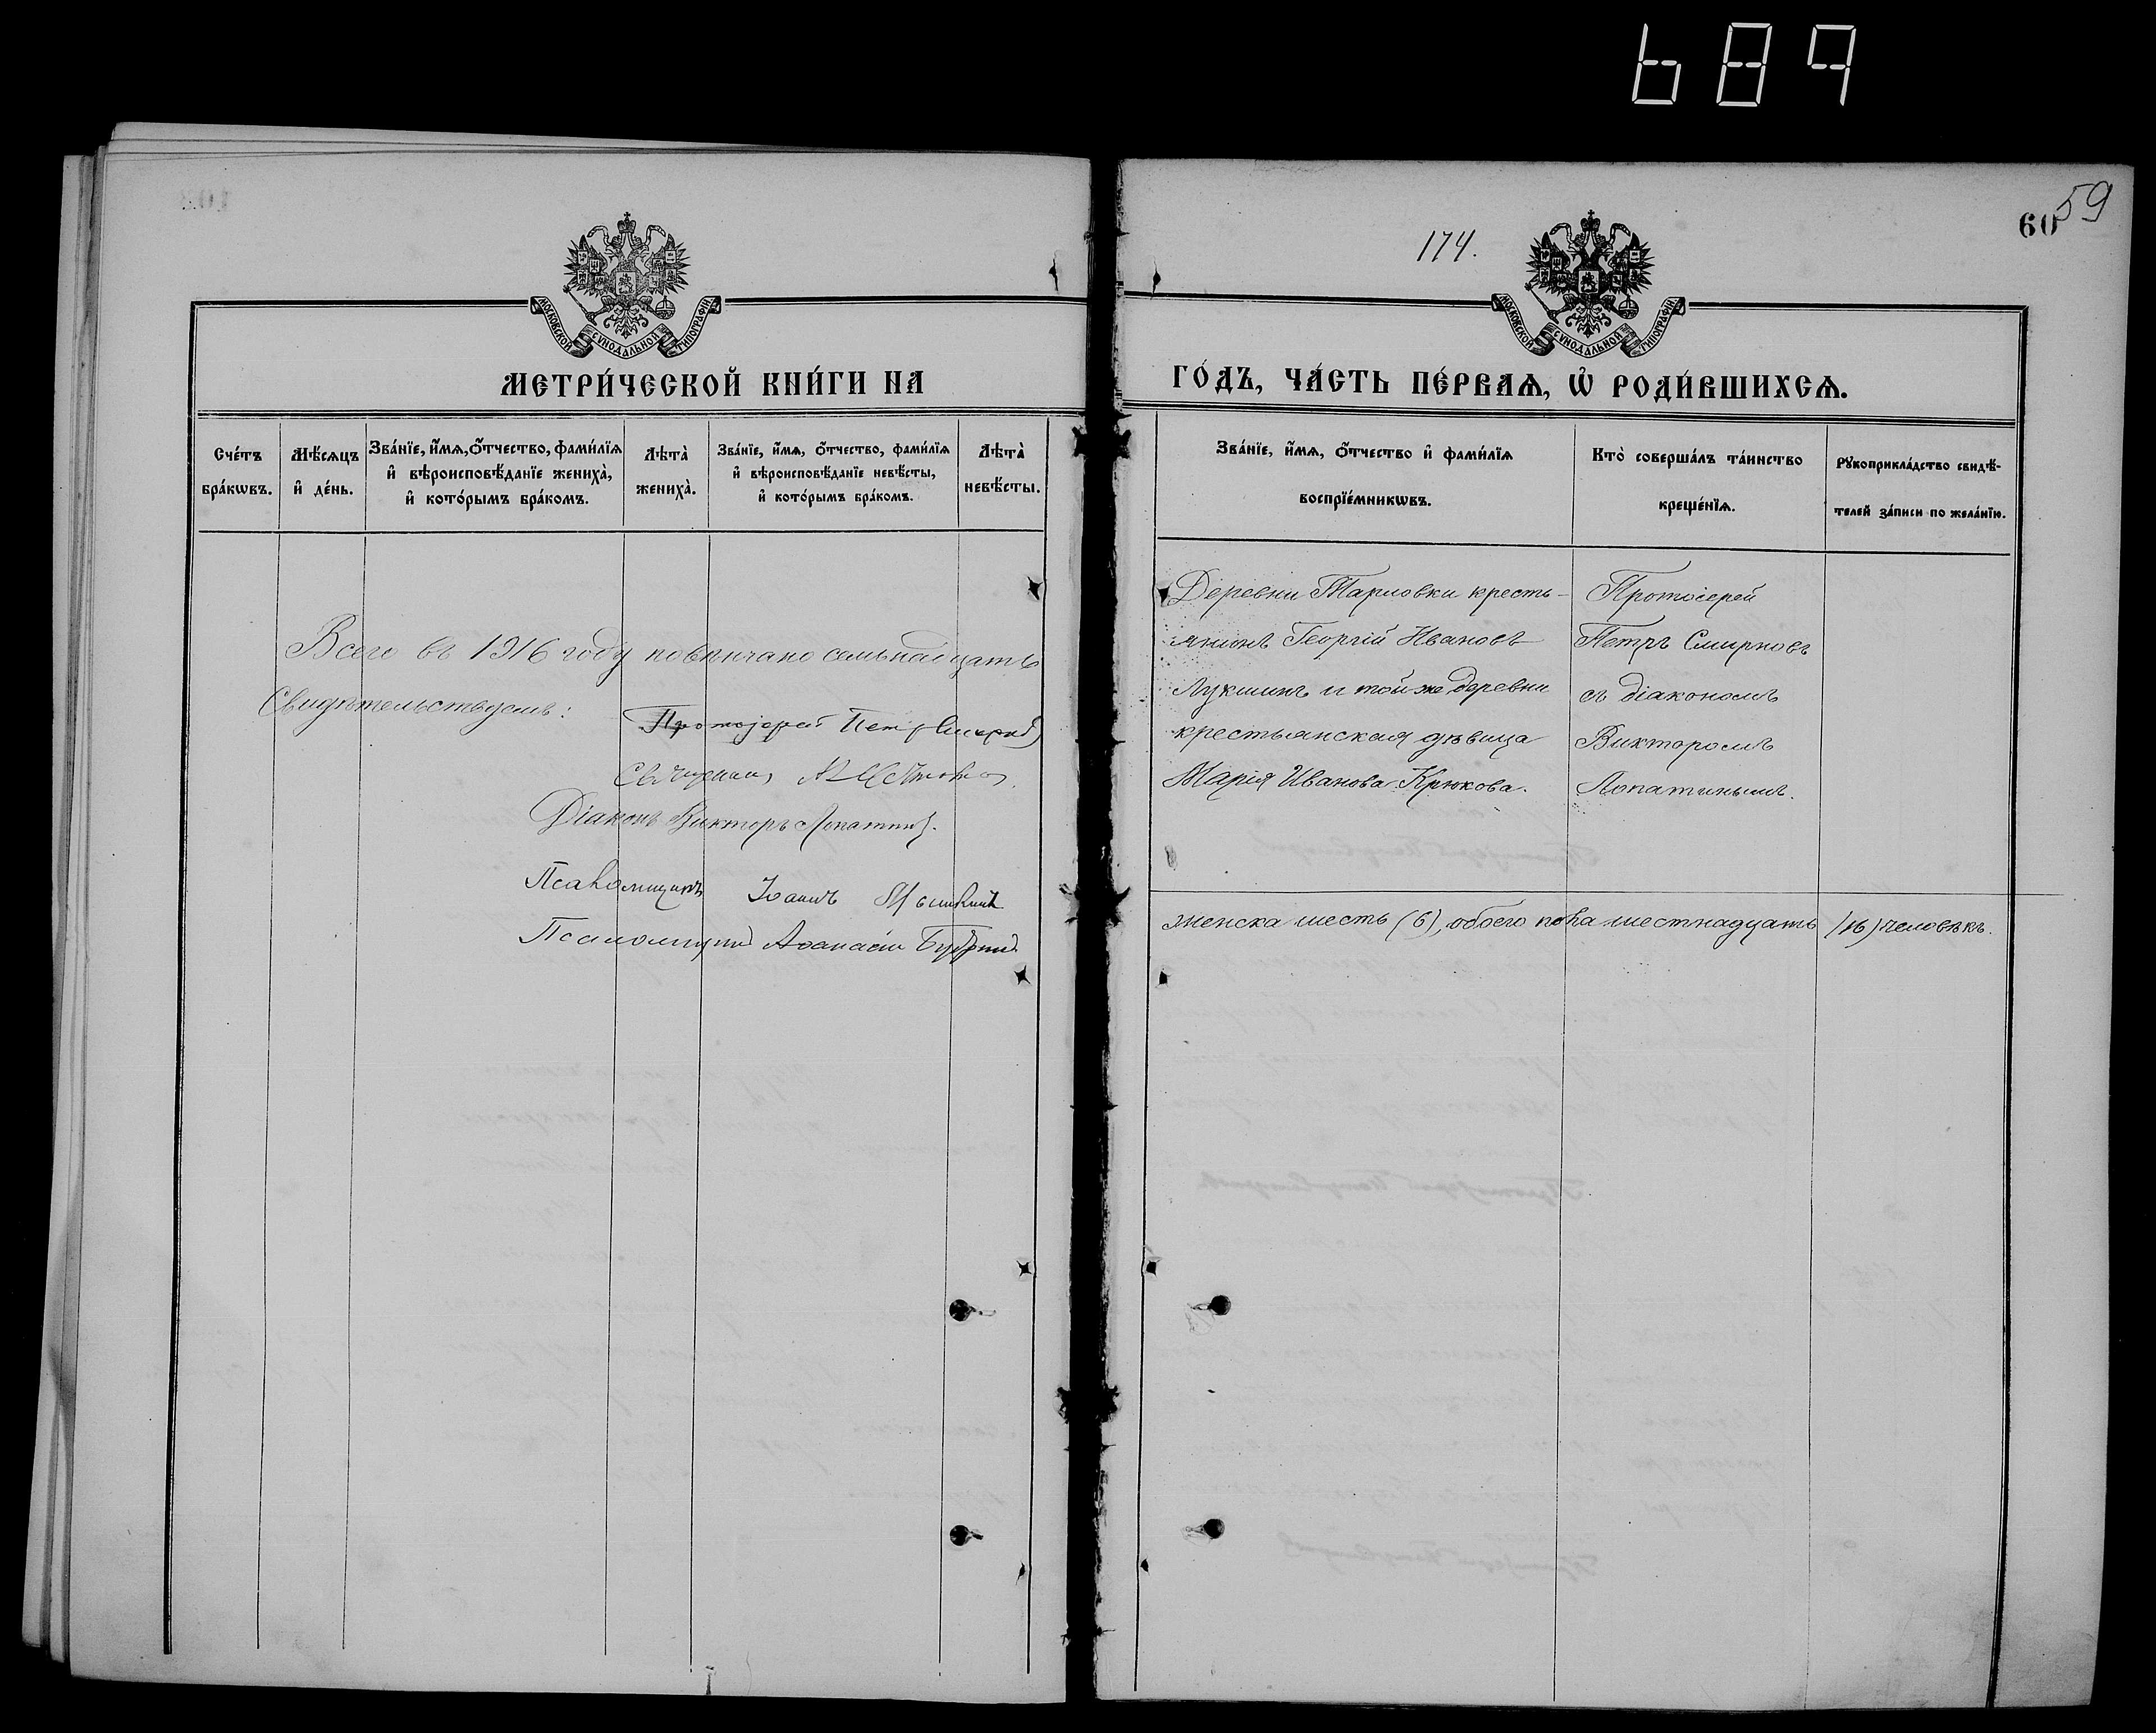 689
МОСКОВСКОЙ СУНОДАЛЬНОЙ ТИПОГРАФІИ
МЕТРИ́ЧЕСКОЙ КНИ́ГИ НА
Сче́тъ бра́кѡвъ.
Мѣ́сяцъ и҆ де́нь.
Зва́нїе, и҆́мѧ, ѻ҆́тчество, фами́лїѧ и҆ вѣроисповѣ́данїе жениха̀, и҆ кото́рымъ бра́комъ.
Лѣта̀ жениха̀.
Зва́нїе, и҆́мѧ, ѻ҆́тчество, фами́лїѧ и҆ вѣроисповѣ́данїе невѣ́сты, и҆ кото́рымъ бра́комъ.
Лѣта̀ невѣ́сты.
Всего въ 1916 году повѣнчано семьнадцать
Свидѣтельствуемъ:
Протоіерей Петръ Смирновъ
Священникъ
Діаконъ Викторъ Лопатинъ.
Псаломщикъ Іоаннъ
Псаломщикъ Аѳанасій
174.
60 59
МОСКОВСКОЙ СУНОДАЛЬНОЙ ТИПОГРАФІИ
ГО́ДЪ, ЧА́СТЬ ПЕ́РВАѦ, Ѽ РОДИ́ВШИХСѦ.
Зва́нїе, и҆́мѧ, ѻ҆́тчество и҆ фами́лїѧ
воспрїе́мникѡвъ.
Кто̀ соверша́лъ та́инство
креще́нїѧ.
Рꙋкоприкла́дство свидѣ́-
телей за́писи по жела́нїю.
Деревни Тарловки кресть-
янинъ Георгій Ивановъ
Лукшинъ и той же деревни
крестьянская дѣвица
Марія Иванова Крюкова.
Протоіерей
Петръ Смирновъ
съ діакономъ
Викторомъ
Лопатинымъ.
женска шесть (6), обоего пола шестнадцать (16) человѣкъ.